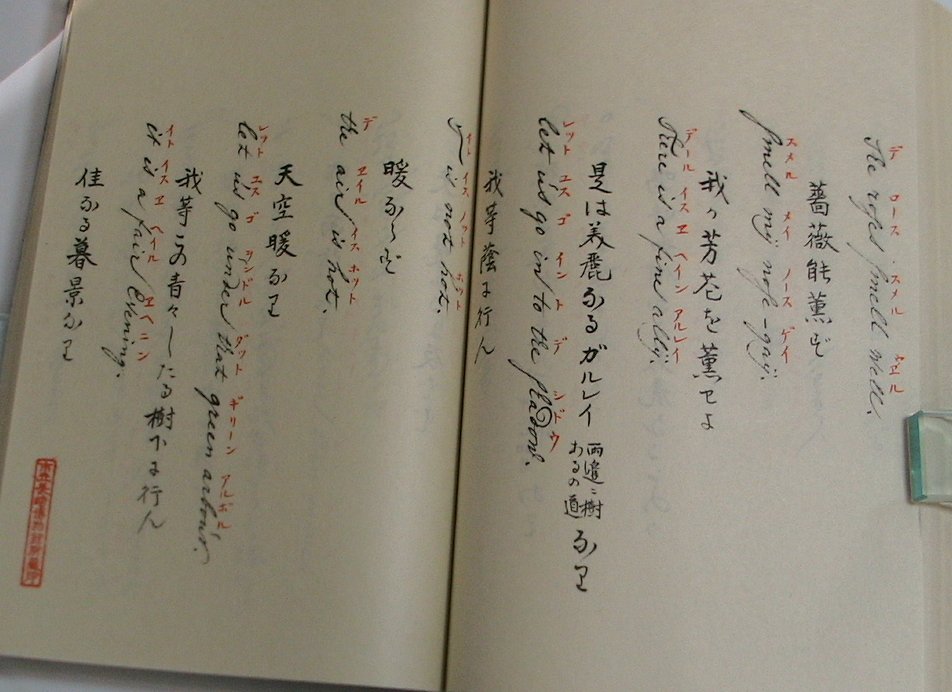 デ ロース スメル ヱル
The roses smell well.
薔薇能薫ず
スメル メイ ノース ゲイ
smell mÿ nose-gaÿ.
我ガ芳花を薫せよ
デール イス ヱ ヘイン アルレイ
There is a fine allÿ.
是は美麗なるガルレイ 両邉ニ樹あるの道 なり
レット ユス ゴ イン ト デ シドウ
let us go in to the shadow.
我等蔭に行ん
イト イス ノット ホット
it is not hot.
暖ならず
デ ヱイル イス ホット
the air is hot.
天空暖なり
レット ユス ゴ ヲンドル ダット ギリーン アルボル
let us go under that green arbour.
我等この青々したる樹下に行ん
イト イス ヱ ヘイル ヱヘニン
it is a fair Evening.
佳なる暮景なり